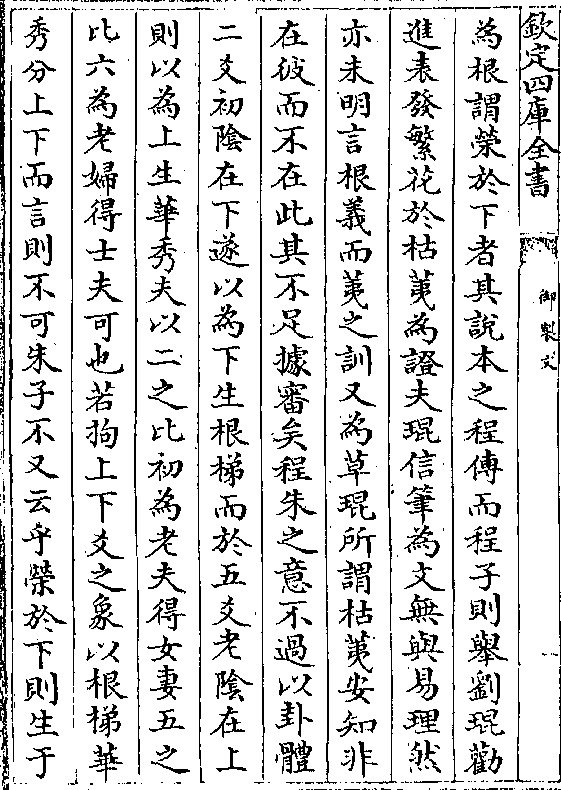 欽定四庫全書
御製文
為根謂榮於下者其說本之程傳而程子則舉劉琨勸
進表發繁花於枯荑為證夫琨信筆為文無與易理然
亦未明言根義而荑之訓又為草琨所謂枯荑安知非
在彼而不在此其不足據審矣程朱之意不過以卦體
二爻初陰在下遂以為下生根梯而於五爻老陰在上
則以為上生華秀夫以二之比初為老夫得女妻五之
比六為老婦得士夫可也若拘上下爻之象以根梯華
秀分上下而言則不可朱子不又云乎榮於下則生于